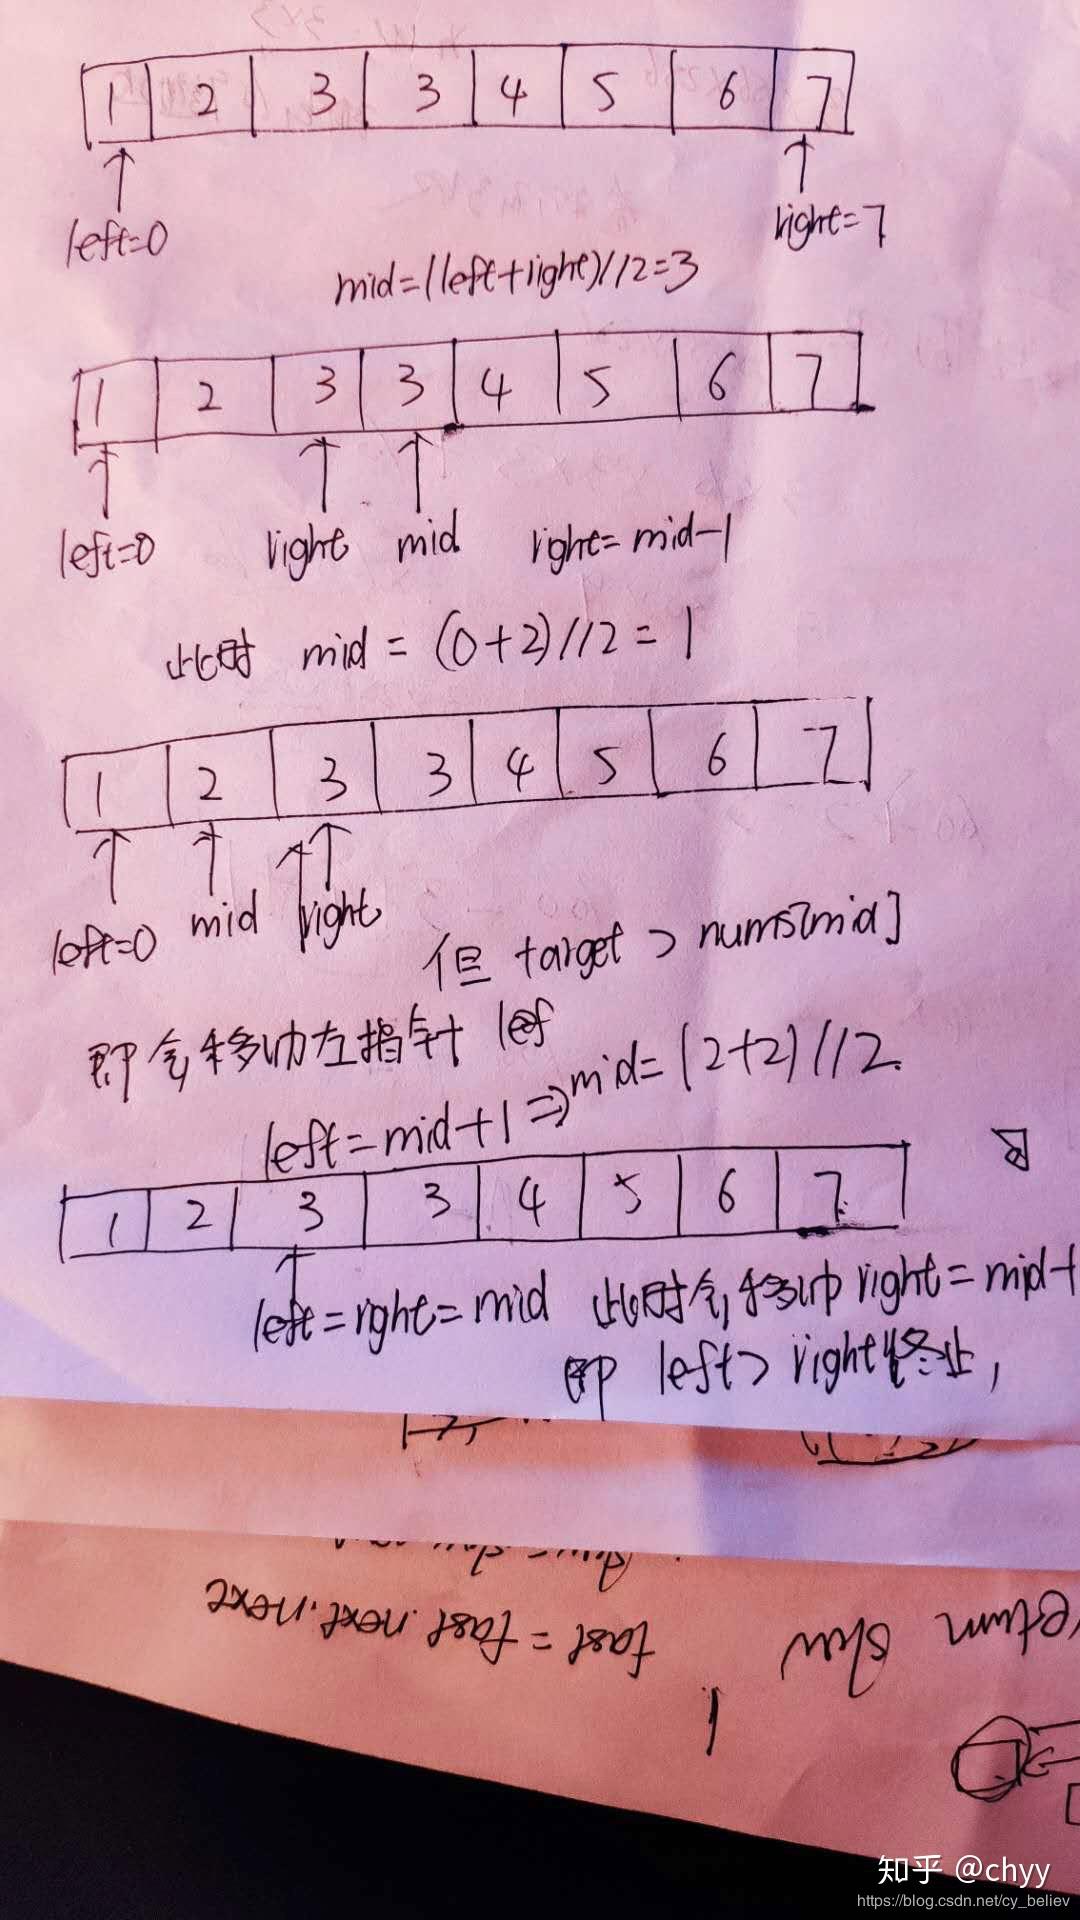 1 2 3 3 4 5 6 7
left=0 right=7
mid=(left+right)//2=3
1 2 3 3 4 5 6 7
left=0 right mid right=mid-1
此时 mid = (0+2)//2 = 1
1 2 3 3 4 5 6 7
left=0 mid right
但 target > nums[mid]
即会移动左指针 lef
left=mid+1 => mid=(2+2)//2
1 2 3 3 4 5 6 7
left=right=mid 此时会移动 right=mid-1
即 left > right终止,
fast = fast.next.next
知乎 @chyy
https://blog.csdn.net/cy_believ